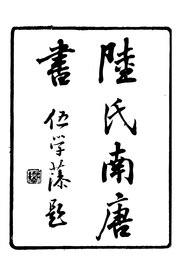 陸氏南唐
書
伍学藻題